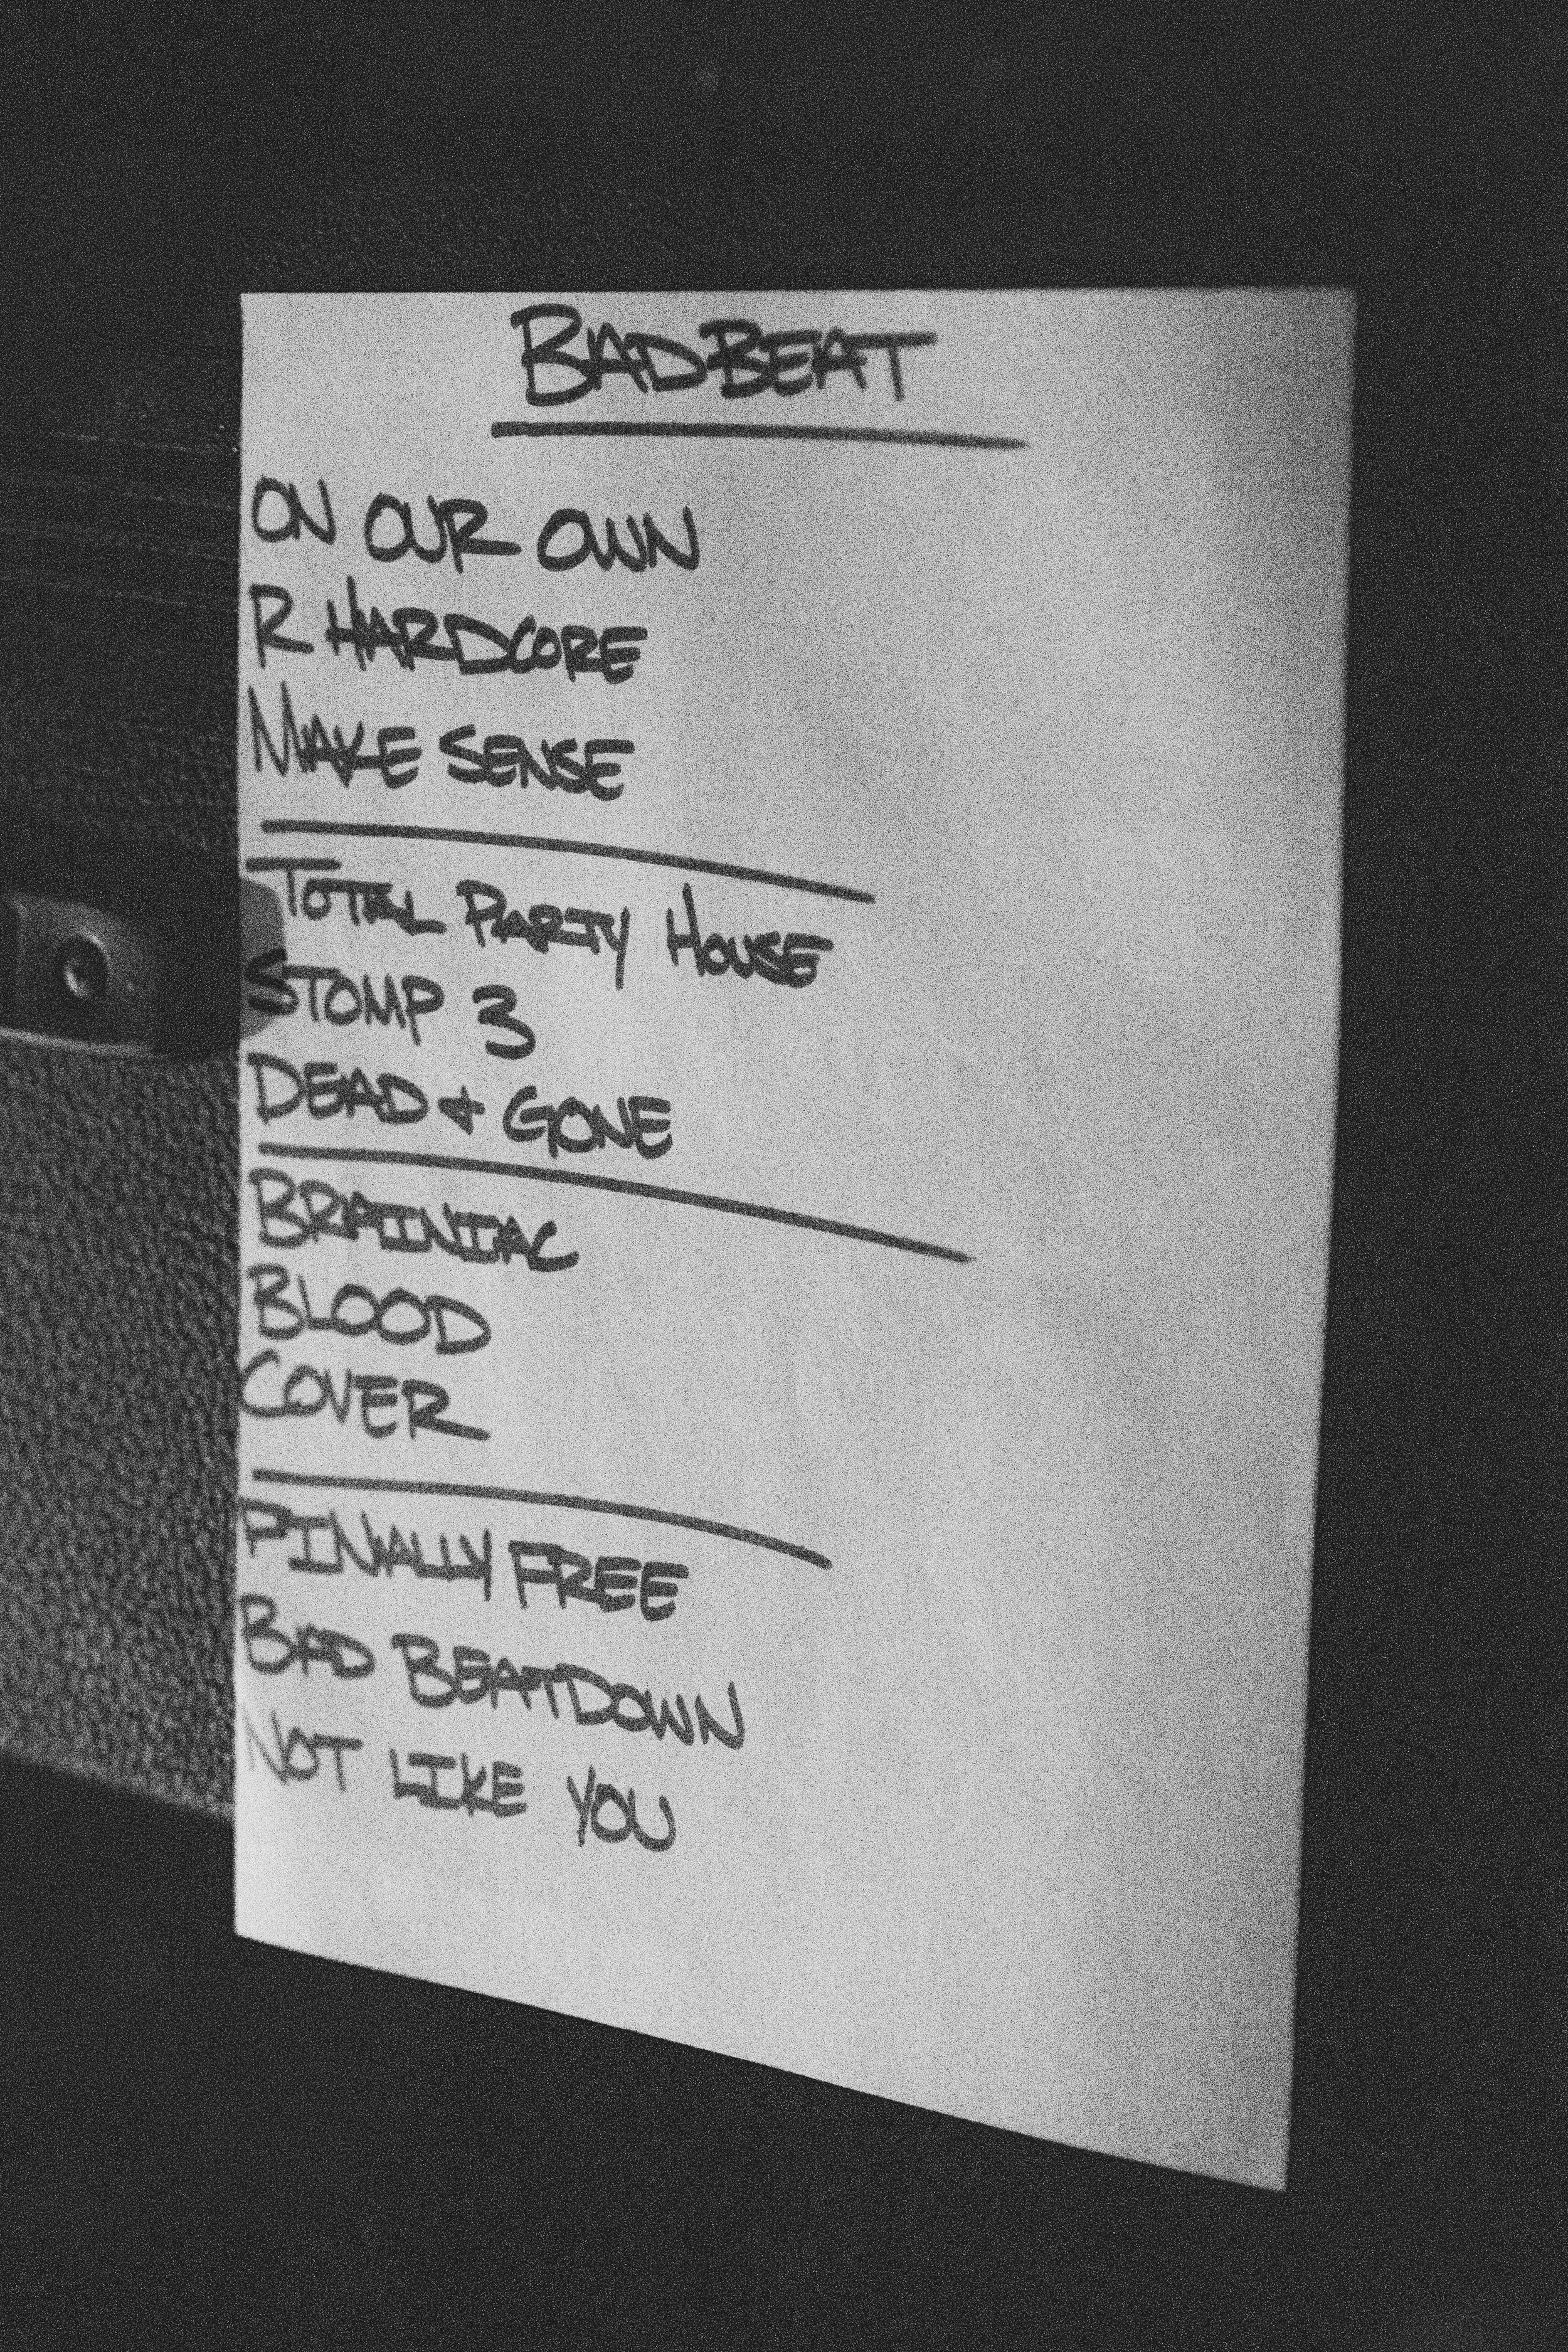 BADBEAT
ON OUR OWN
R HARDCORE
MAKE SENSE
TOTAL PARTY HOUSE
STOMP 3
DEAD + GONE
BRAINIAC
BLOOD
COVER
FINALLY FREE
BAD BEATDOWN
NOT LIKE YOU